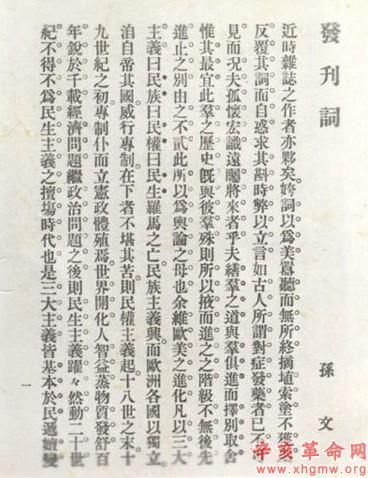 發刊詞
孫文
近時雜誌之作者亦夥矣。姱詞以爲美。囂聽而無所終。摘埴索塗不獲
反覆其詞而自惑。求其斟時弊以立言。如古人所謂對症發藥者。已不可
見。而況夫孤懷宏識。遠矚將來者乎。夫繕羣之道。與羣俱進。而擇別取舍。
惟其最宜。此羣之歷史。旣與彼羣殊。則所以掖而進之之階級。不無後先
進止之別。由之不貳。此所以爲輿論之母也。余維歐美之進化。凡以三大
主義。曰民族。曰民權。曰民生。羅馬之亡。民族主義興。而歐洲各國以獨立。
洎自帝其國。威行專制。在下者不堪其苦。則民權主義起。十八世之末。十
九世紀之初。專制仆而立憲政體殖焉。世界開化。人智益蒸。物質發舒。百
年銳於千載。經濟問題繼政治問題之後。則民生主義躍々然動。二十世
紀不得不爲民生主義之擅塲時代也。是三大主義皆基本於民。遞嬗變
一
辛亥革命网
www.xhgmw.org